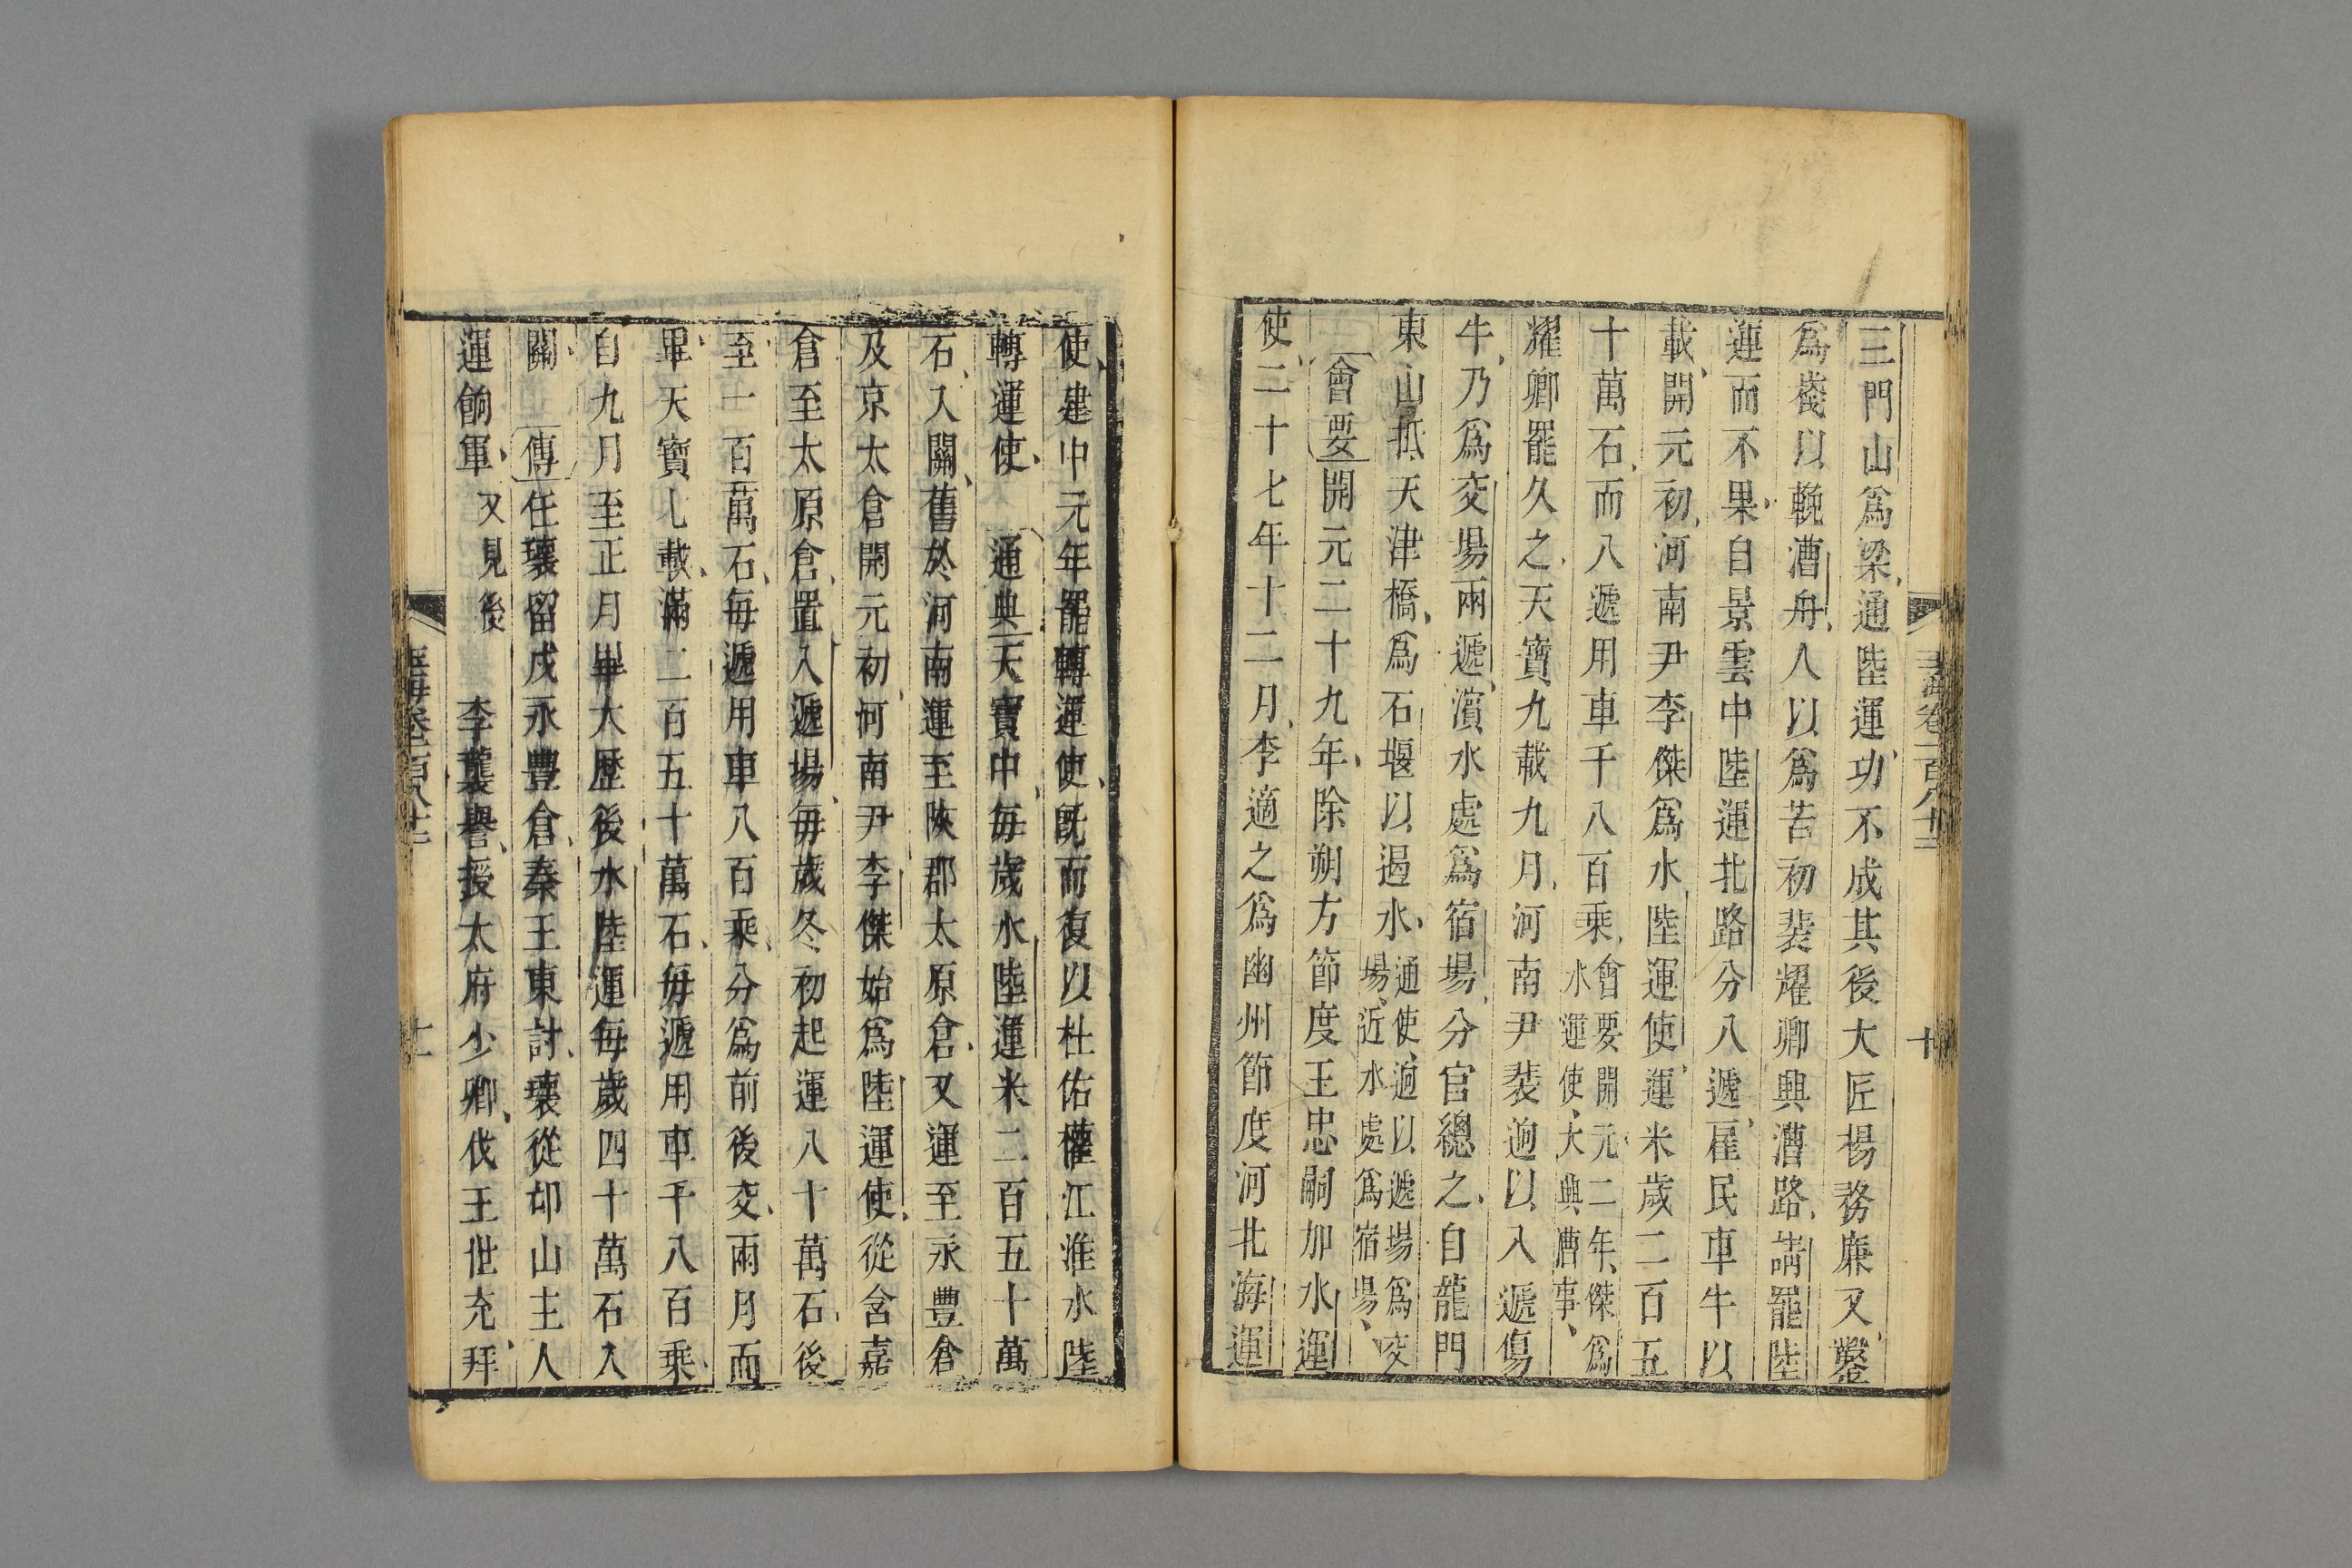 三門山爲梁通陸運功不成其後大匠楊務廉又鑿
爲棧以輓漕舟人以爲苦初裴耀卿興漕路請罷陸
運而不果自景雲中陸運北路分八遞雇民車牛以
載開元初河南尹李傑爲水陸運使運米歲二百五
十萬石而八遞用車千八百乘
會要開元二年傑爲
水運使大興漕事
耀卿罷久之天寶九載九月河南尹裴迥以八遞傷
牛乃爲交場兩遞濱水處爲宿場分官總之自龍門
東山抵天津橋爲石堰以遏水
通使迥以遞場爲交
場近水處爲宿場
會要開元二十九年除朔方節度王忠嗣加水運
使二十七年十二月李適之爲幽州節度河北海運
玉海卷一百八十二
十
使建中元年罷轉運使旣而復以杜佑權江淮水陸
轉運使 通典天寶中每歲水陸運米二百五十萬
石入關舊於河南運至陝郡太原倉又運至永豐倉
及京太倉開元初河南尹李傑始爲陸運使從含嘉
倉至太原倉置八遞場每歲冬初起運八十萬石後
至一百萬石每遞用車八百乘分爲前後交兩月而
畢天寶七載滿二百五十萬石每遞用車千八百乘
自九月至正月畢大歷後水陸運每歲四十萬石入
關 傳任瓌留戍永豐倉秦王東討瓌從邙山主人
運餉軍
又見後
李襲譽授太府少卿伐王世充拜
玉海卷一百八十二
十一